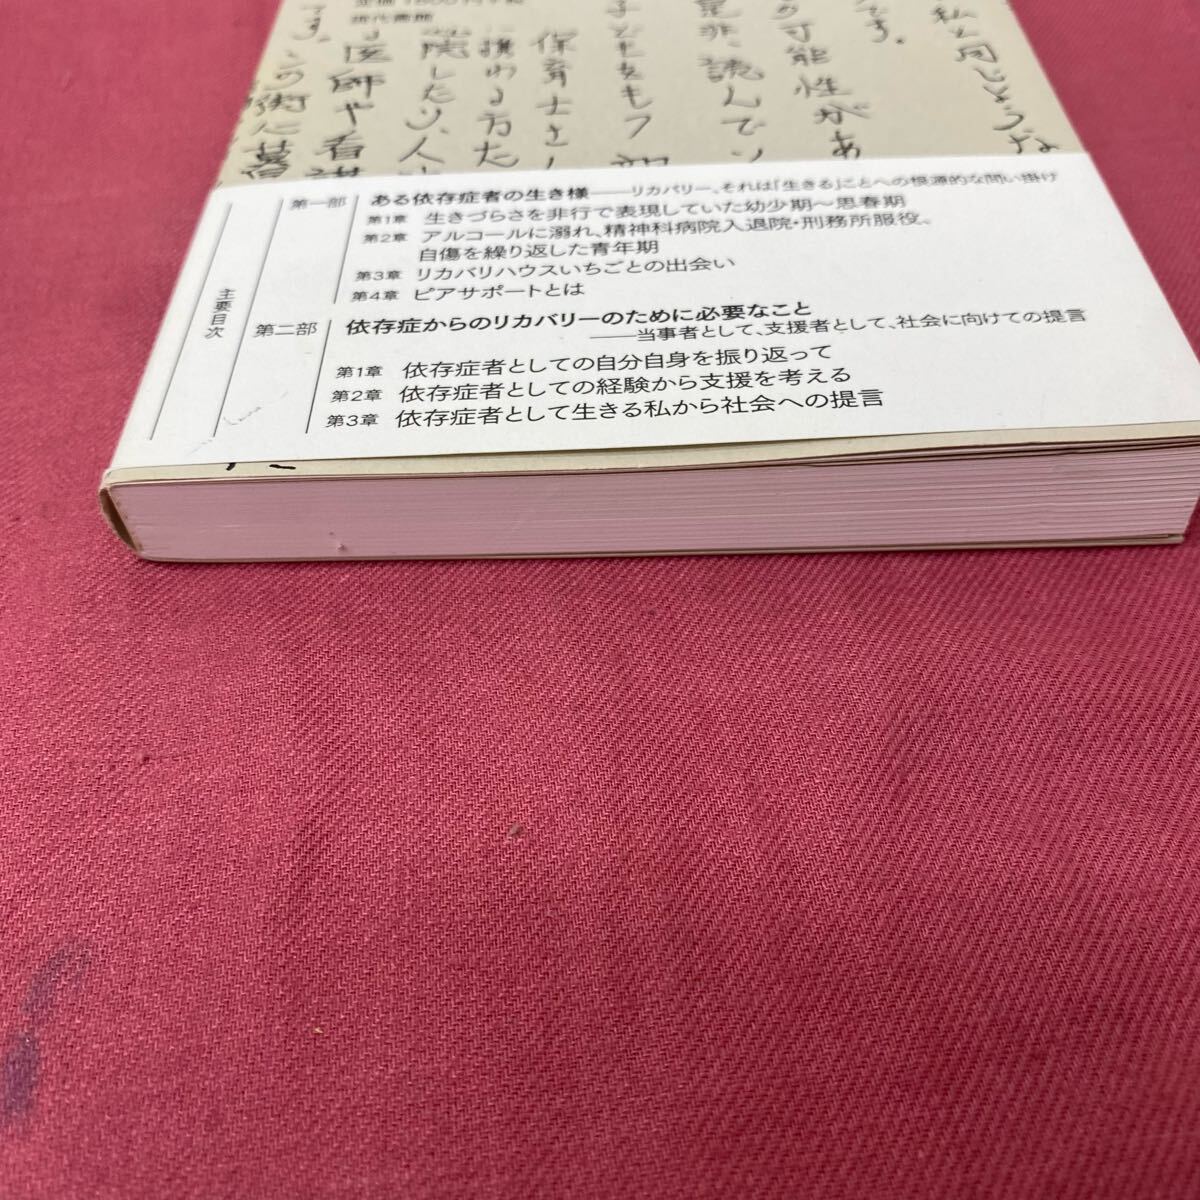 私と同じような
です。
の可能性があ
是非、読んでい
子どもをもつ
保育士さん
携わる方た
院したり、人
医師や看護
です。この
定価1800円＋税
現代書館
主要目次
第一部 ある依存症者の生き様――リカバリー、それは「生きる」ことへの根源的な問い掛け
第1章 生きづらさを非行で表現していた幼少期〜思春期
第2章 アルコールに溺れ、精神科病院入退院・刑務所服役、
自傷を繰り返した青年期
第3章 リカバリハウスいちごとの出会い
第4章 ピアサポートとは
第二部 依存症からのリカバリーのために必要なこと
――当事者として、支援者として、社会に向けての提言
第1章 依存症者としての自分自身を振り返って
第2章 依存症者としての経験から支援を考える
第3章 依存症者として生きる私から社会への提言